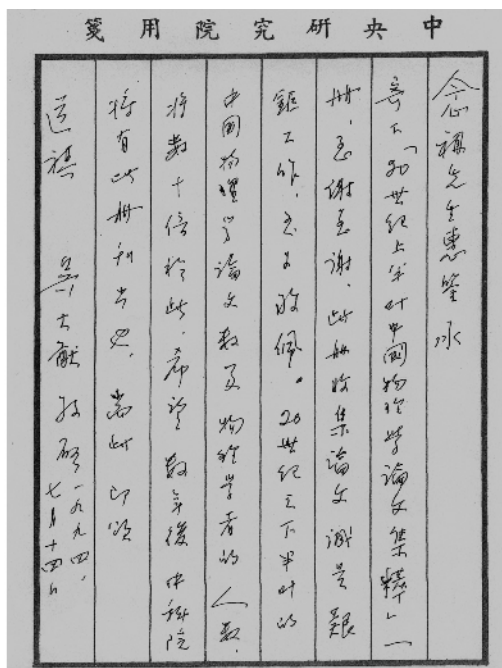 中央研究院用箋
念祖先生惠鑒承
寄下「20世紀上半叶中國物理学論文集粹」一
册,至謝至謝.此册收集論文誠是艱
鉅工作,至可敬佩。20世紀之下半叶的
中國物理学論文数及物理学者的人数,
将数十倍於此.希望数年後中科院
将有此册刊出也.耑此即頌
道祺 吳大猷敬啓 一九九四、七月十四日